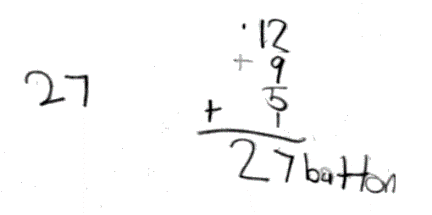 27
12
+ 9
5
+ 1
27 button